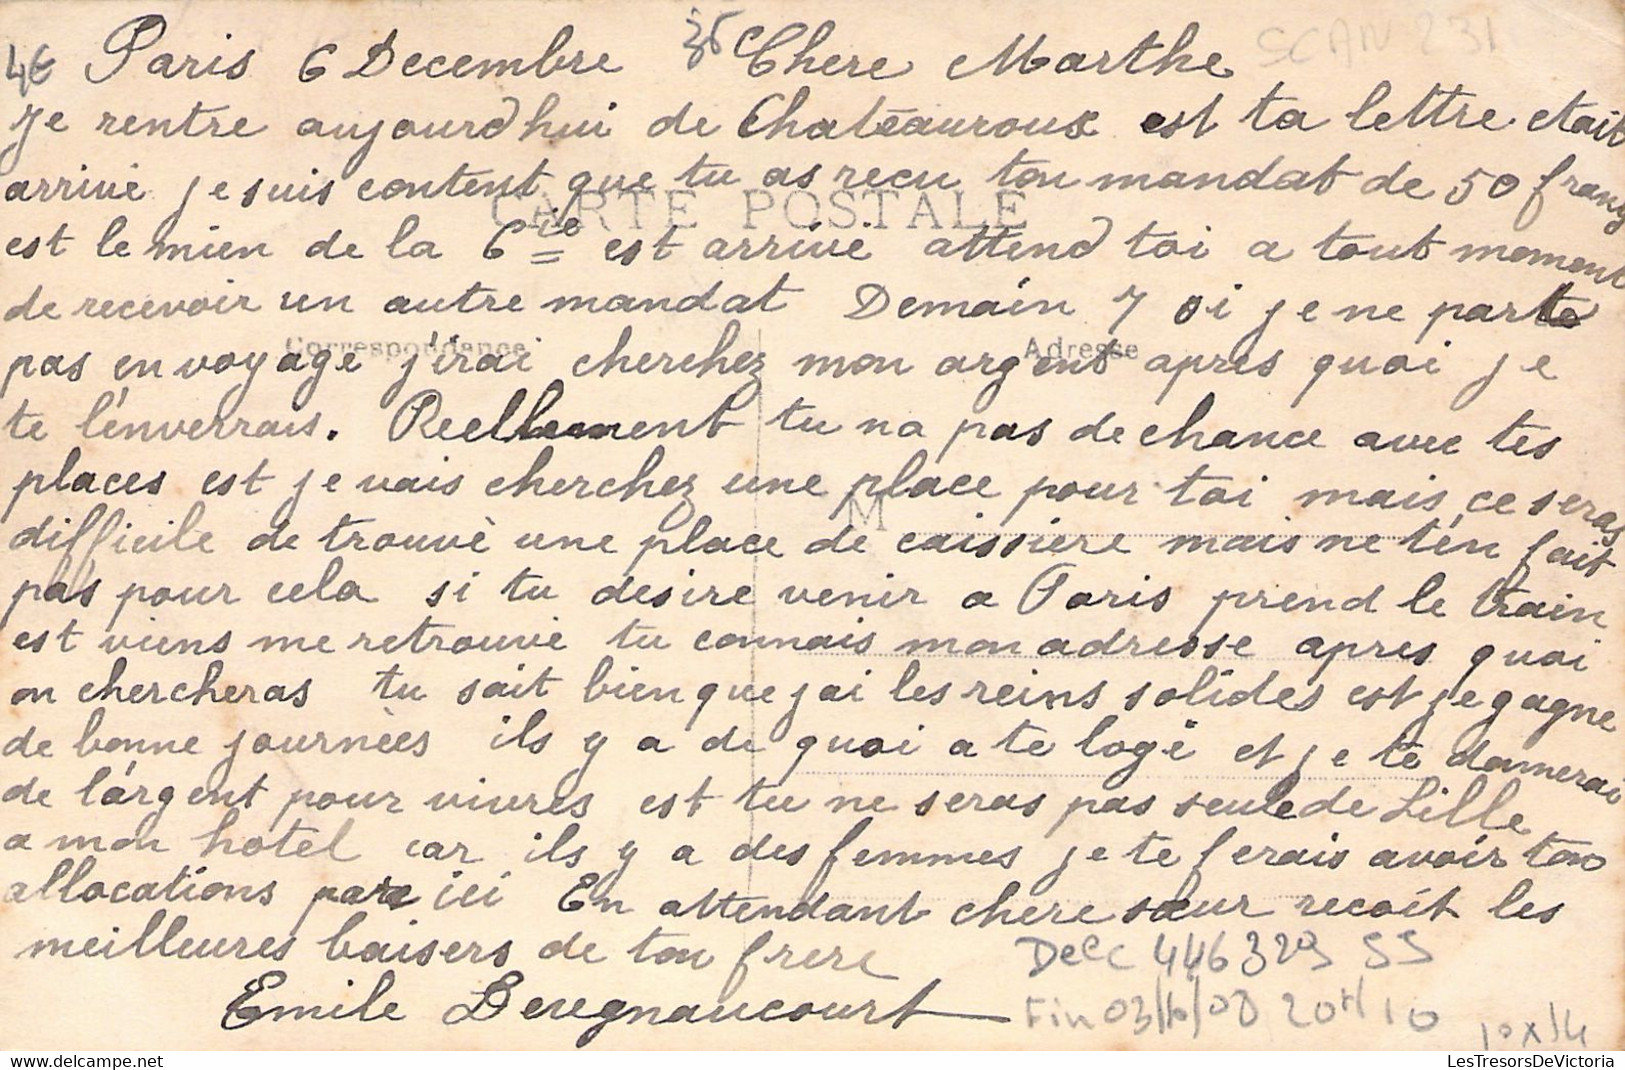 4€ Paris 6 Decembre 35c Chere Marthe SCAN 231
Je rentre aujourd'hui de Chateauroux est ta lettre etait
arrivé je suis content que tu as recu ton mandat de 50 franc
CARTE POSTALE
est le mien de la Cie est arrivé attend toi a tout moment
de recevoir un autre mandat Demain 7 si je ne parte
Correspondance
Adresse
pas en voyage j'irai cherchez mon argent apres quoi je
te l'enverrais. Reellement tu na pas de chance avec tes
places est je vais cherchez une place pour toi mais ce seras
M
difficile de trouvè une place de caissiere mais ne t'en fait
pas pour cela si tu desire venir a Paris prend le train
est viens me retrouvé tu connais mon adresse apres quoi
on chercheras tu sait bien que jai les reins solides est je gagne
de bonne journèes ils y a de quoi a te logé et je te donnerai
de l'argent pour vivres est tu ne seras pas seule de Lille
a mon hotel car ils y a des femmes je te ferais avoir ton
allocations par ici En attendant chere sœur recoit les
meilleures baisers de ton frere
Emile Deregnaucourt
Delc 446329 SS
Fin 03/10/08 20H10
10x14
LesTresorsDeVictoria